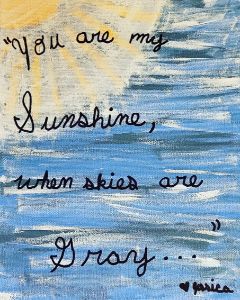 "You are my
Sunshine,
when skies are
Gray..."
♥Jessica